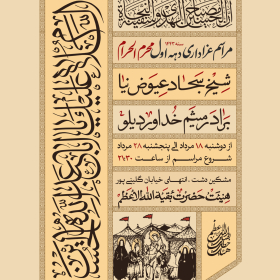 ان الحسین مصباح الهدی و سفینة النجاة
السلام علیک یا ابا عبدالله الحسین
مراسم عزاداری دهه اول محرم الحرام
سنه ۱۴۴۳
شیخ سجاد عیوض نیا
برادر میثم خداوردیلو
از دوشنبه ۱۸ مرداد الی پنجشنبه ۲۸ مرداد
شروع مراسم از ساعت ۲۱:۳۰
مشگین دشت . انتهای خیابان گلبنی پور
هیئت حضرت بقیة الله الاعظم